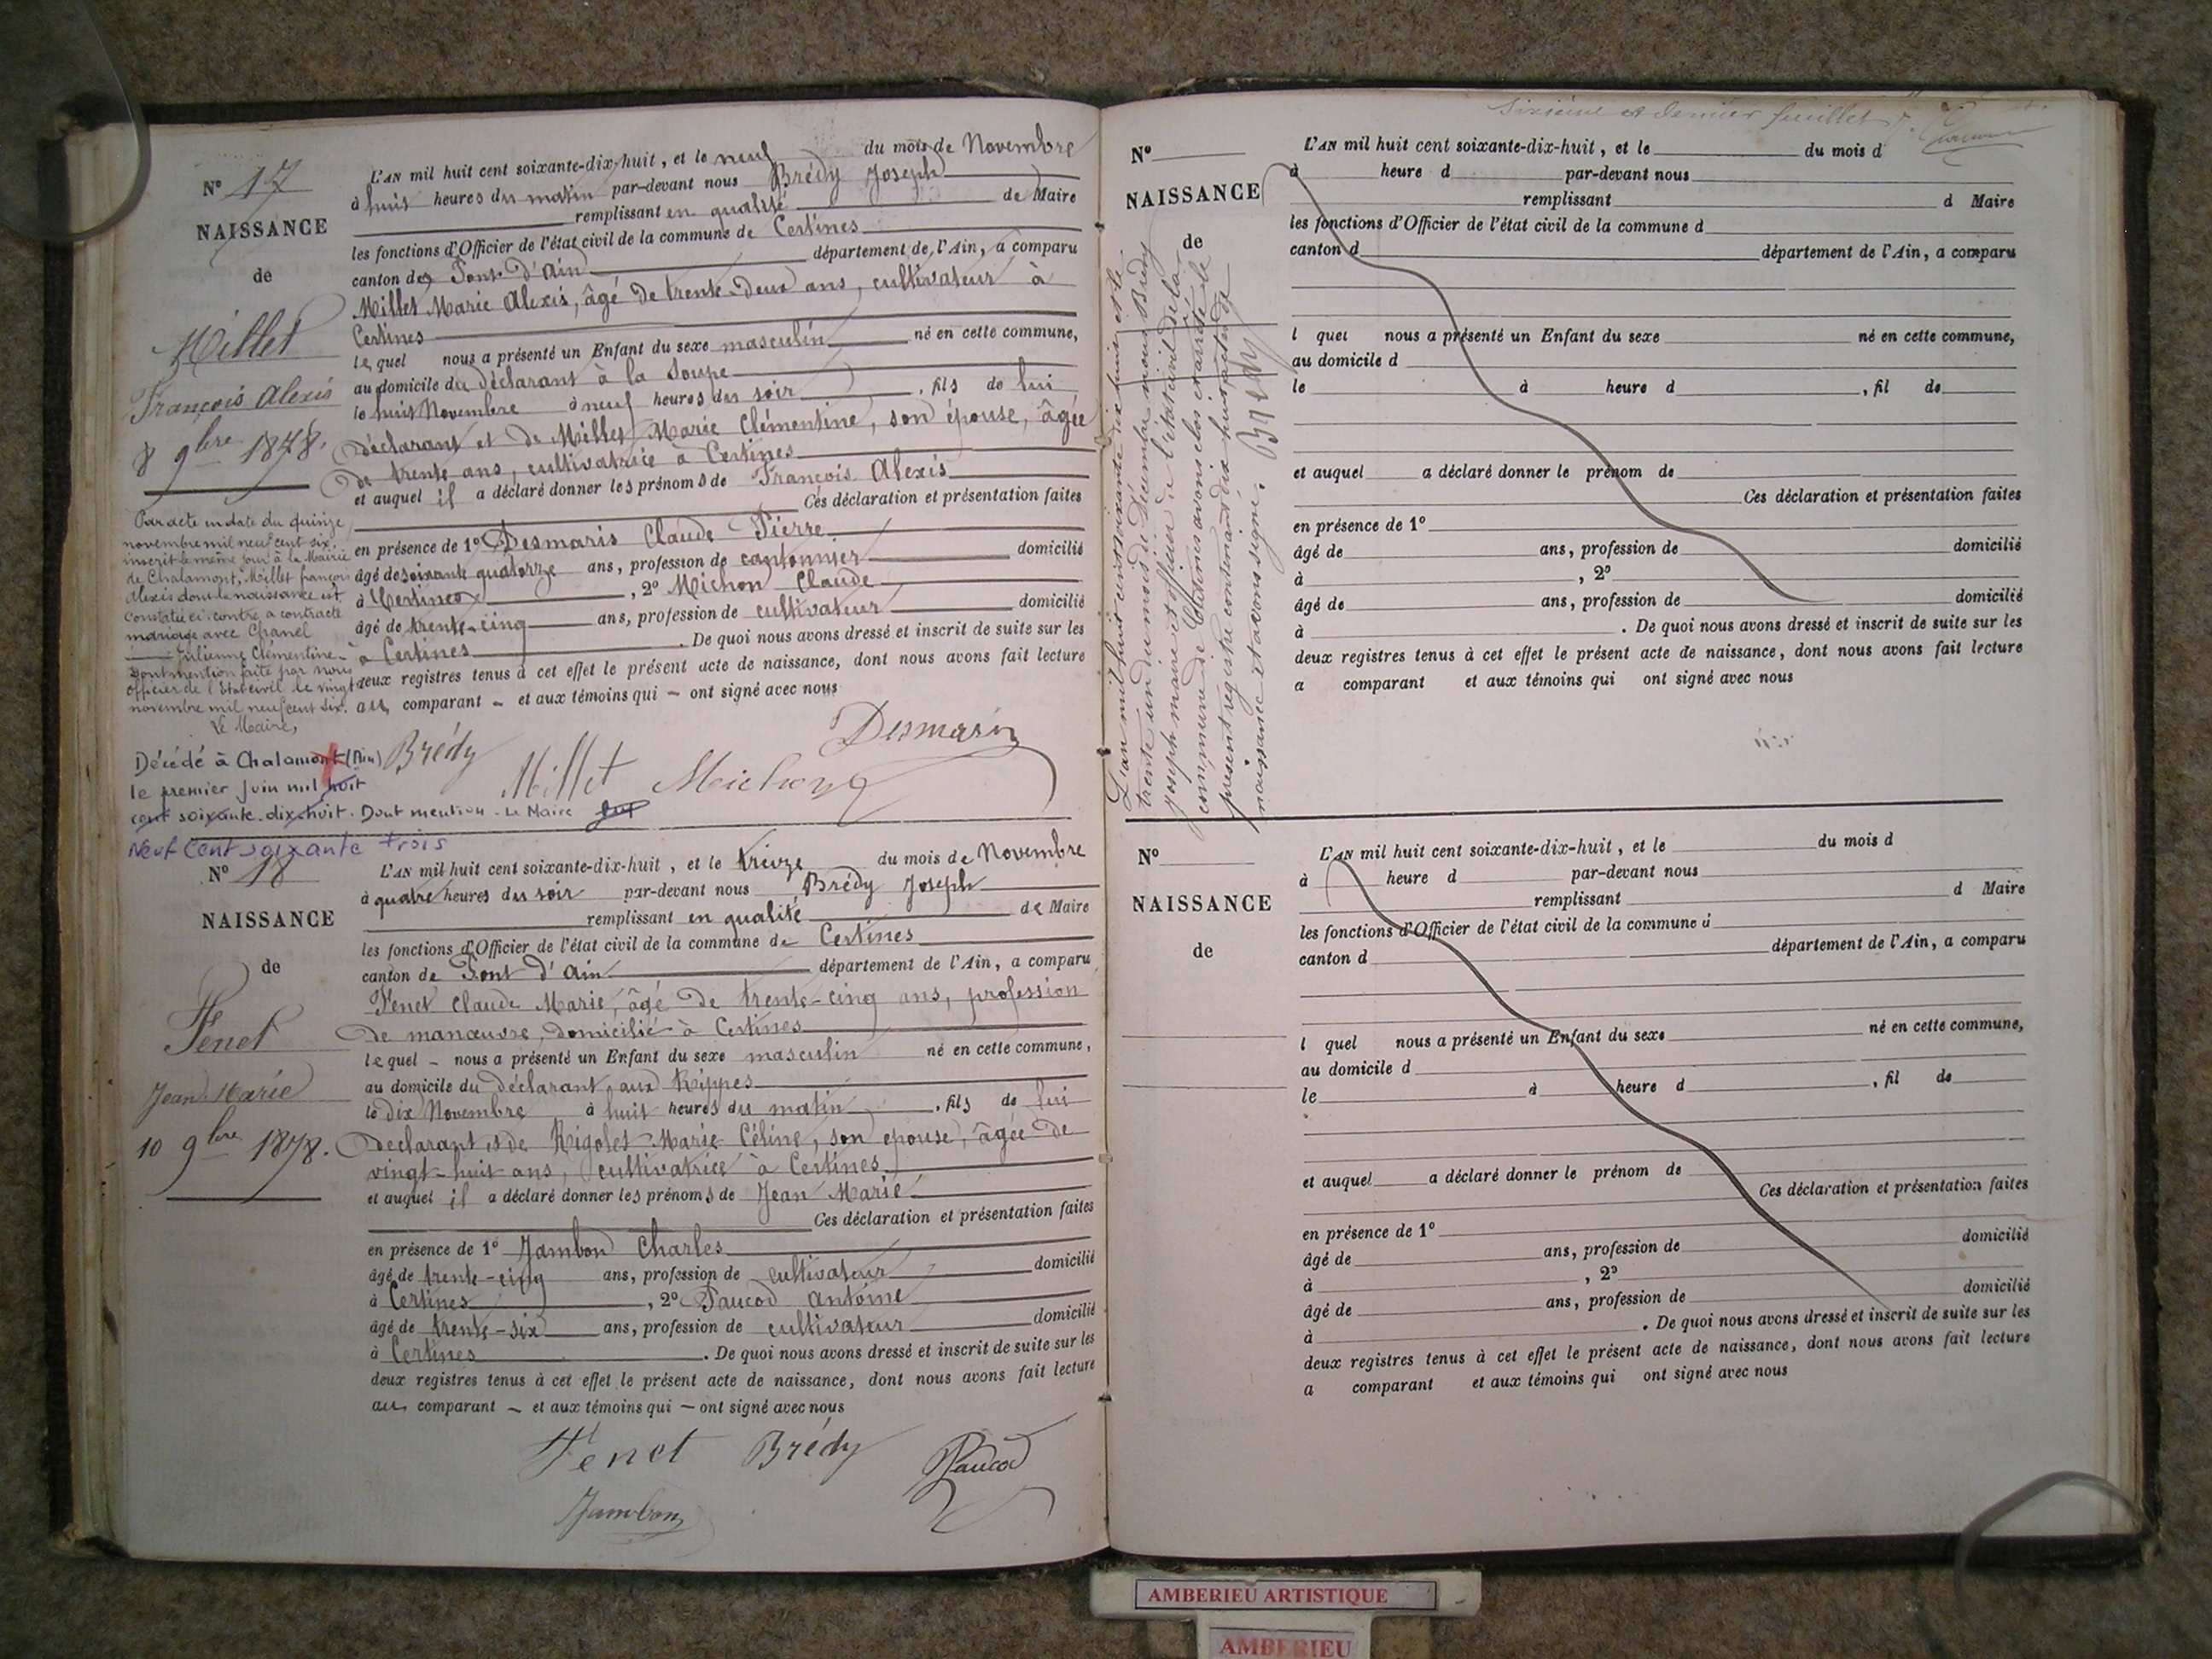 N° 17
NAISSANCE
de
Millet
François Alexis
8 9bre 1878.
L'AN mil huit cent soixante-dix-huit, et le neuf du mois de Novembre
à huit heures du matin par-devant nous Brédy Joseph
remplissant en qualité de Maire
les fonctions d'Officier de l'état civil de la commune de Certines
canton de Pont-d'Ain département de l'Ain, a comparu
Millet Marie Alexis, âgé de trente-deux ans, cultivateur à
Certines
lequel nous a présenté un Enfant du sexe masculin né en cette commune,
au domicile du déclarant à la Soupe
le huit Novembre à neuf heures du soir, fils de lui
déclarant et de Millet Marie Clémentine, son épouse, âgée
de trente ans, cultivatrice à Certines
et auquel il a déclaré donner les prénoms de François Alexis
Ces déclaration et présentation faites
en présence de 1° Desmaris Claude Pierre
âgé de soixante quatorze ans, profession de cantonnier domicilié
à Certines, 2° Michon Claude
âgé de trente-cinq ans, profession de cultivateur domicilié
à Certines. De quoi nous avons dressé et inscrit de suite sur les
deux registres tenus à cet effet le présent acte de naissance, dont nous avons fait lecture
au comparant - et aux témoins qui - ont signé avec nous
Par acte en date du quinze
novembre mil neuf cent six
inscrit le même jour à la Mairie
de Chalamont, Millet françois
Alexis dont la naissance est
constatée ci-contre a contracté
mariage avec Chanel
Julienne Clémentine
Dont mention faite par nous
officier de l'Etat civil le vingt
novembre mil neuf cent six.
Le Maire,
Brédy Millet Michon Desmaris
Décédé à Chalamont (Ain)
le premier Juin mil huit
cent soixante-dix-huit. Dont mention - Le Maire
Neuf Cent soixante trois
N° 18
NAISSANCE
de
Fenet
Jean Marie
10 9bre 1878.
L'AN mil huit cent soixante-dix-huit, et le treize du mois de Novembre
à quatre heures du soir par-devant nous Brédy Joseph
remplissant en qualité de Maire
les fonctions d'Officier de l'état civil de la commune de Certines
canton de Pont d'Ain département de l'Ain, a comparu
Fenet Claude Marie, âgé de trente-cinq ans, profession
de manœuvre, domicilié à Certines
lequel - nous a présenté un Enfant du sexe masculin né en cette commune,
au domicile du déclarant, aux Rippes
le dix Novembre à huit heures du matin, fils de lui
déclarant et de Rigolet Marie Céline, son épouse, âgée de
vingt-huit ans, cultivatrice à Certines
et auquel il a déclaré donner les prénoms de Jean Marie
Ces déclaration et présentation faites
en présence de 1° Jambon Charles
âgé de trente-cinq ans, profession de cultivateur domicilié
à Certines, 2° Paucod antoine
âgé de trente-six ans, profession de cultivateur domicilié
à Certines. De quoi nous avons dressé et inscrit de suite sur les
deux registres tenus à cet effet le présent acte de naissance, dont nous avons fait lecture
au comparant - et aux témoins qui - ont signé avec nous
Fenet Brédy Paucod
Jambon
Sixième et dernier feuillet
N°
NAISSANCE
de
L'an mil huit cent soixante dix huit et le
trente un du mois de Décembre nous Brédy
Joseph maire et officier de l'état civil de la
commune de Certines avons clos et arrêté le
présent registre contenant dix huit actes de
naissance et avons signé. Brédy
L'AN mil huit cent soixante-dix-huit, et le du mois d
à heure d par-devant nous
remplissant d Maire
les fonctions d'Officier de l'état civil de la commune d
canton d département de l'Ain, a comparu
l quel nous a présenté un Enfant du sexe né en cette commune,
au domicile d
le à heure d , fil de
et auquel a déclaré donner le prénom de
Ces déclaration et présentation faites
en présence de 1°
âgé de ans, profession de domicilié
à , 2°
âgé de ans, profession de domicilié
à . De quoi nous avons dressé et inscrit de suite sur les
deux registres tenus à cet effet le présent acte de naissance, dont nous avons fait lecture
a comparant et aux témoins qui ont signé avec nous
N°
NAISSANCE
de
L'AN mil huit cent soixante-dix-huit, et le du mois d
à heure d par-devant nous
remplissant d Maire
les fonctions d'Officier de l'état civil de la commune d
canton d département de l'Ain, a comparu
l quel nous a présenté un Enfant du sexe né en cette commune,
au domicile d
le à heure d , fil de
et auquel a déclaré donner le prénom de
Ces déclaration et présentation faites
en présence de 1°
âgé de ans, profession de domicilié
à , 2°
âgé de ans, profession de domicilié
à . De quoi nous avons dressé et inscrit de suite sur les
deux registres tenus à cet effet le présent acte de naissance, dont nous avons fait lecture
a comparant et aux témoins qui ont signé avec nous
AMBERIEU ARTISTIQUE
AMBERIEU